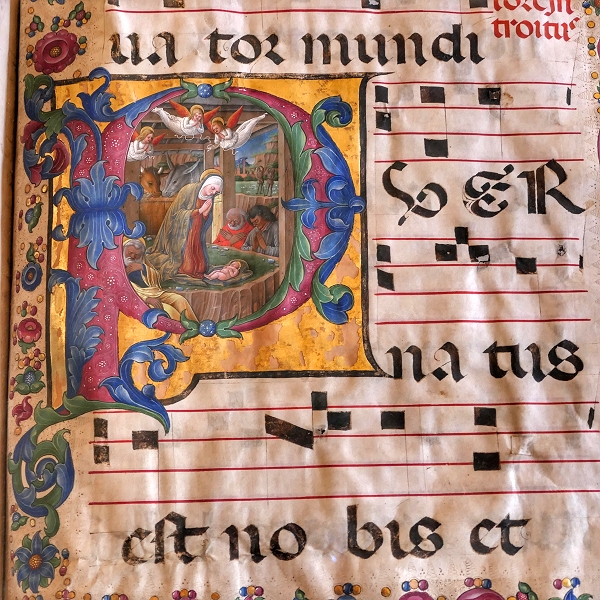 troitus
ua tor mundi
P V ER
na tus
est no bis et